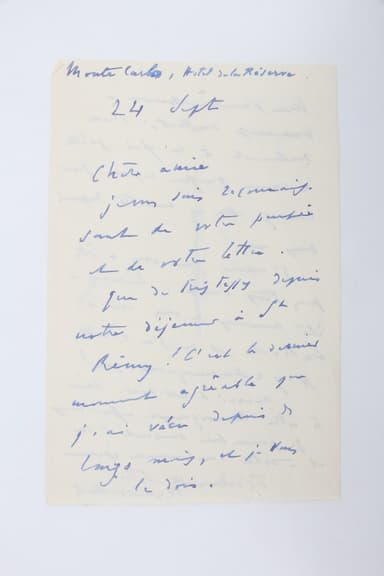 Monte Carlo, Hotel de la Réserve.
24 Sept
Chère amie
je vous suis reconnais-
sant de votre pensée
et de votre lettre.
Que de tristesses depuis
notre déjeuner à St
Rémy! C'est le dernier
moment agréable que
j'ai vécu depuis de
longs mois, et je vous
le dois.